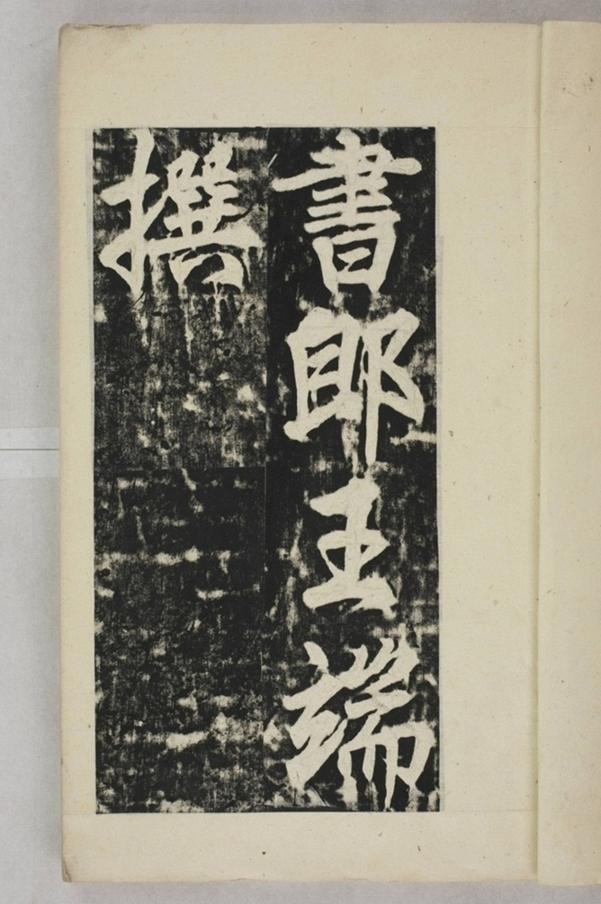 書郎王端
撰